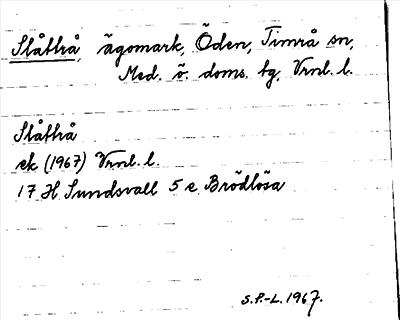 Slåttrå, ägomark, Öden, Timrå sn,
Med. ö. doms. tg, Vrnl. l.
Slåttrå
ek (1967) Vrnl. l.
17 H Sundsvall 5 e Brödlösa
S.P.-L. 1967.